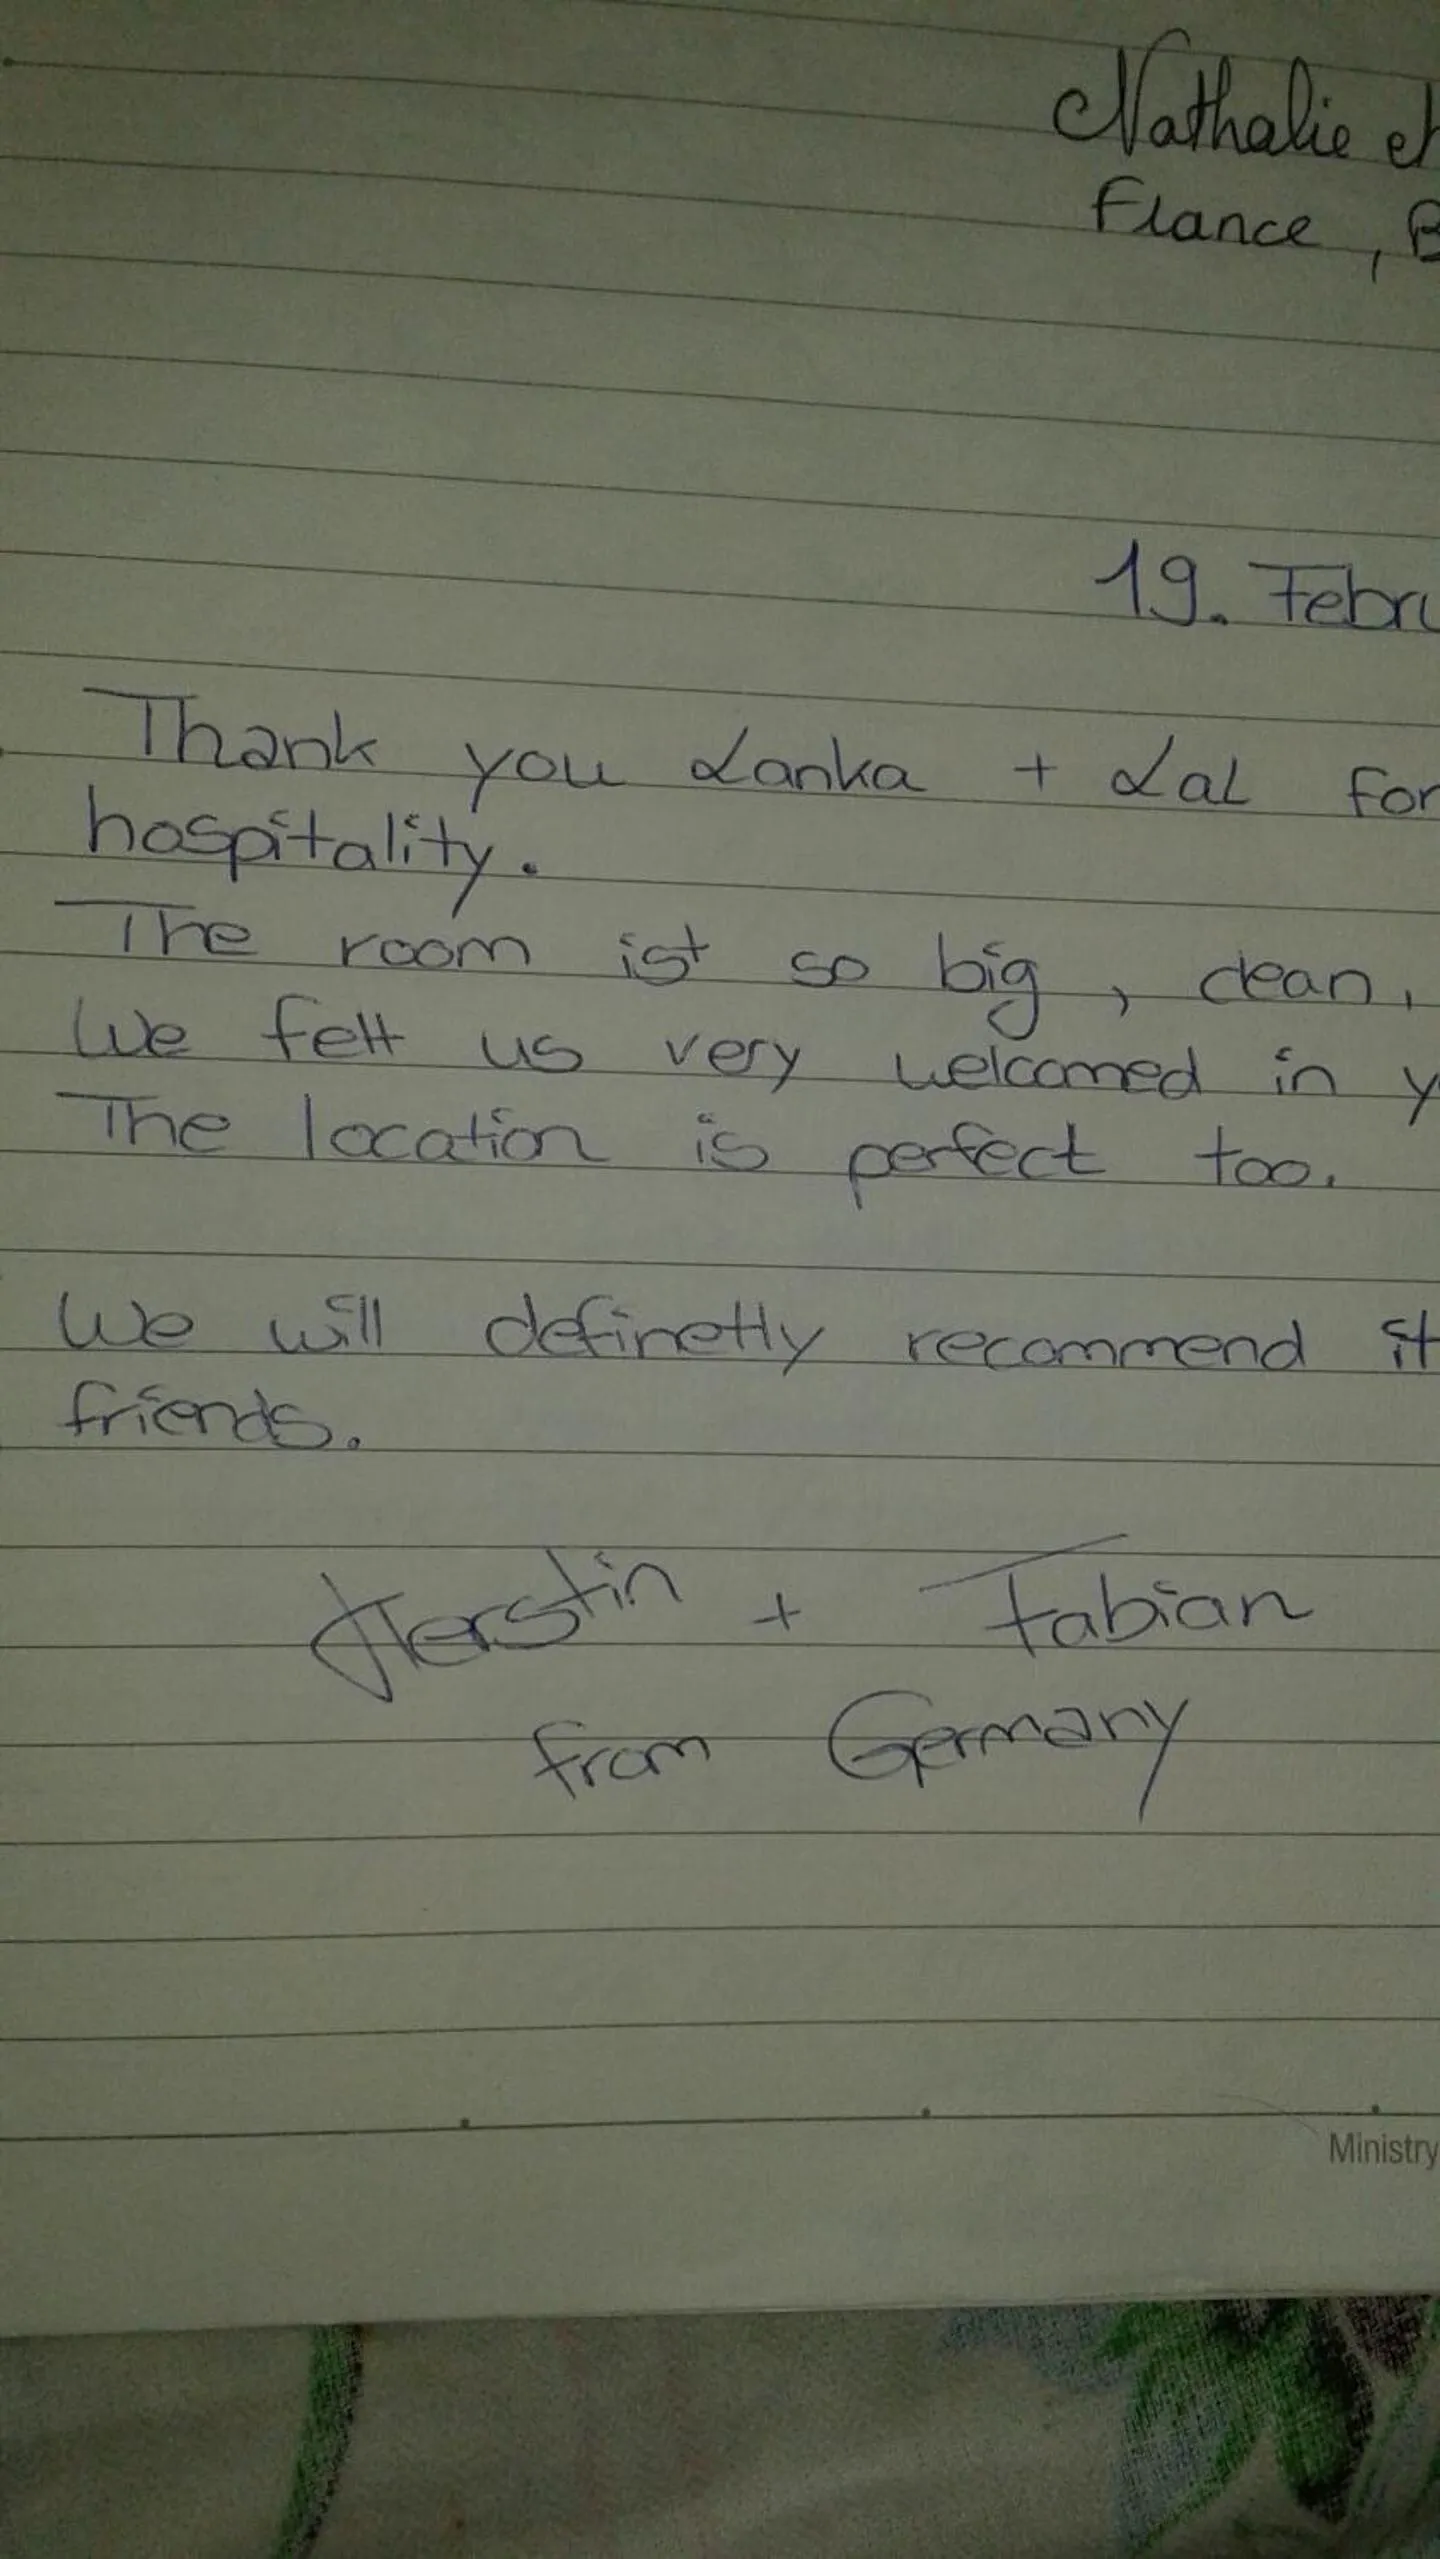 Nathalie et
France, B
19. Febru
Thank you Lanka + Lal for
hospitality.
The room ist so big, clean,
We felt us very welcomed in y
The location is perfect too.
We will definetly recommend it
friends.
Kerstin + Fabian
from Germany
Ministry